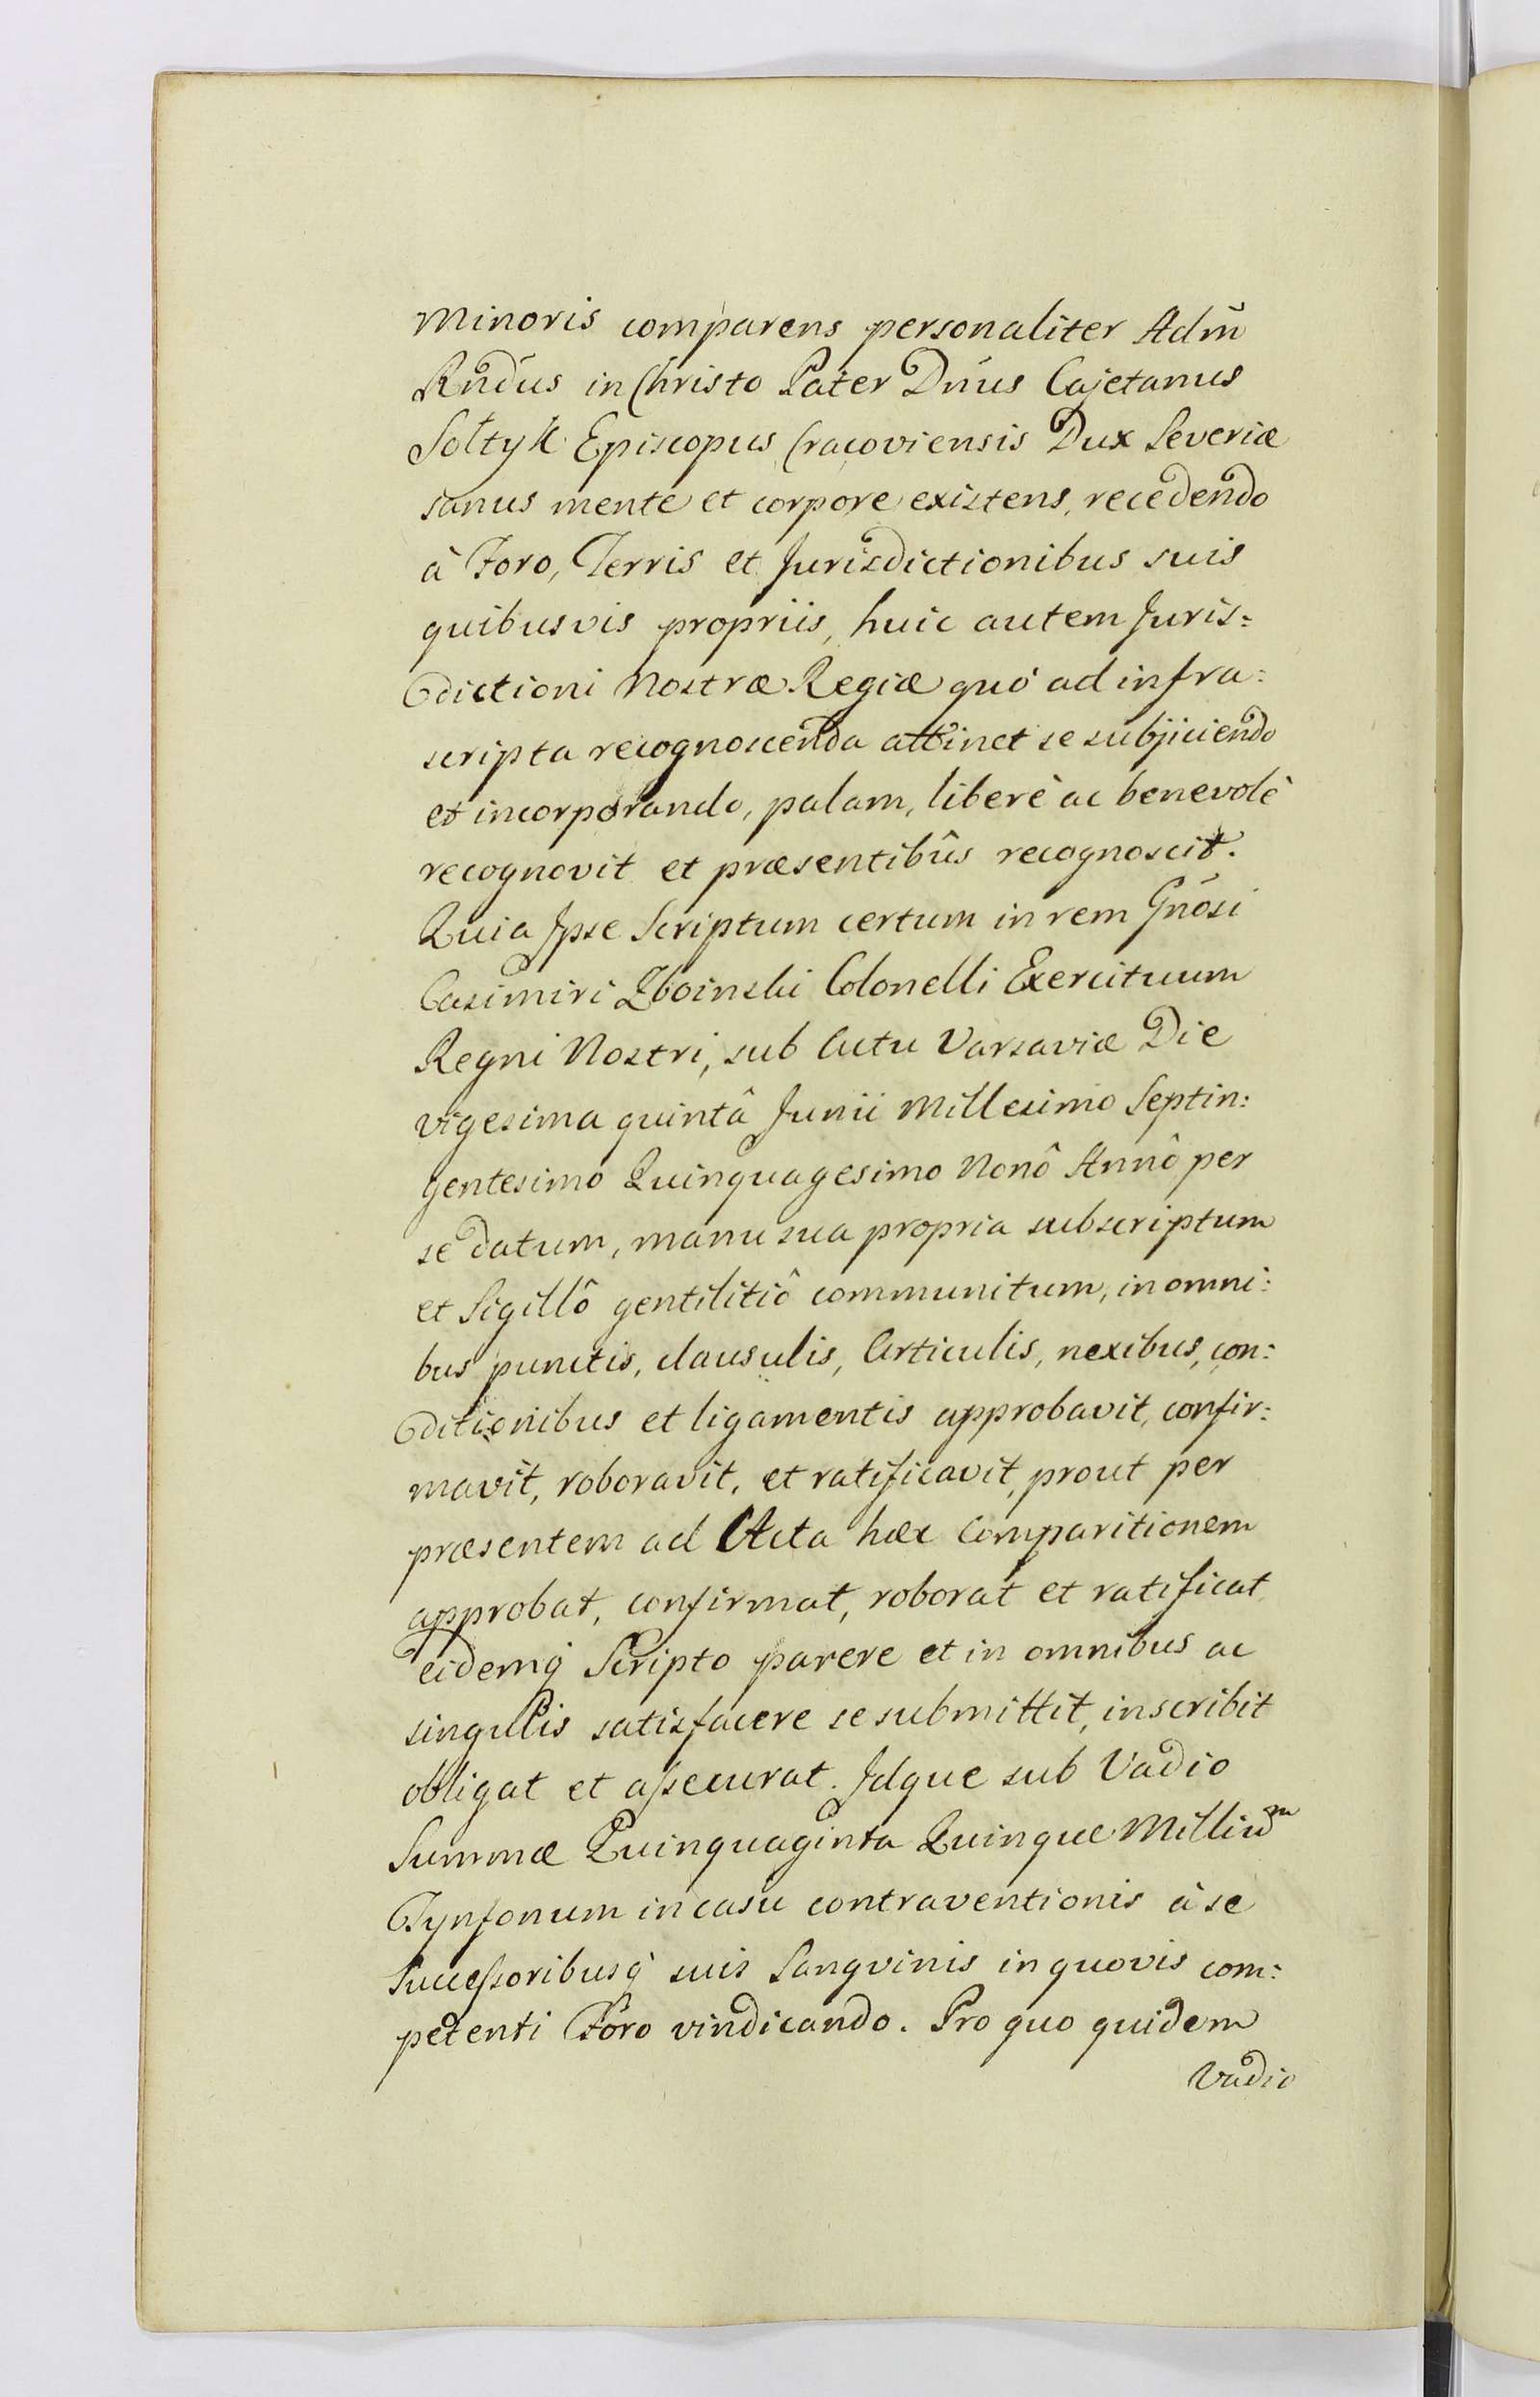 Minoris comparens personaliter Adm̃
Rñdus in Christo Pater Dñus Cajetanus
Sołtyk Episcopus Cracoviensis Dux Severiæ
sanus mente et corpore existens, recedendo
à Foro, Terris et Jurisdictionibus suis
quibusvis propriis, huic autem Juris=
dictioni Nostræ Regiæ quò ad infra=
scripta recognoscenda attinet se subjiciendo
et incorporando, palam, liberè ac benevolè
recognovit et præsentibûs recognoscit.
Quia Ipse Scriptum certum in rem Gñosi
Casimiri Zboinski Colonelli Exercituum
Regni Nostri, sub Actu Varsaviæ Die
vigesima quintâ Junii Millesimo Septin=
gentesimo Quinquagesimo Nonô Annô per
se datum, manu sua propria subscriptum
et Sigillô gentilitiô communitum, in omni=
bus punctis, clausulis, Articulis, nexibus, con=
ditionibus et ligamentis approbavit, confir=
mavit, roboravit, et ratificavit, prout per
præsentem ad Acta hæc Comparitionem
approbat, confirmat, roborat et ratificat
eidemq̃ Scripto parere et in omnibus ac
singulis satisfacere se submittit, inscribit
obligat et assecurat. Idque sub Vadio
Summæ Quinquaginta Quinque Milliũm
Tynfonum in casu contraventionis à se
Successoribusq̃ suis Sangvinis in quovis com=
petenti Foro vindicando. Pro quo quidem
Vadio